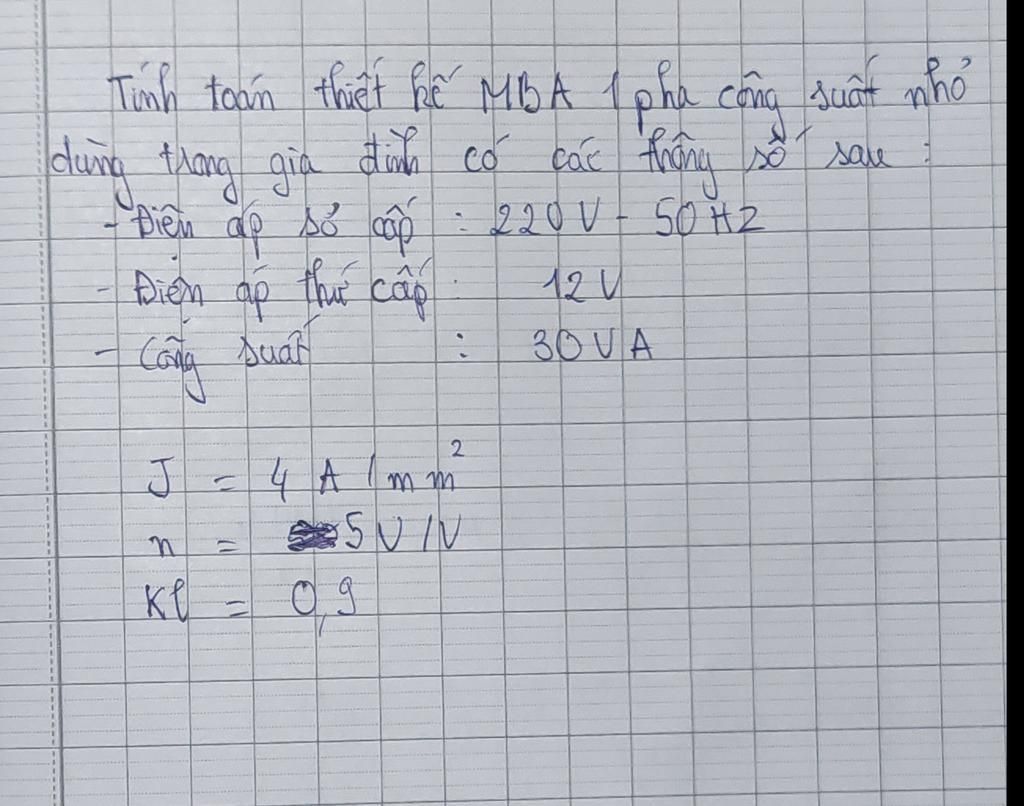 Tính toán thiết kế MBA 1 pha công suất nhỏ
dùng trong gia đình có các thông số sau :
- Điện áp sơ cấp : 220V - 50Hz
- Điện áp thứ cấp : 12V
- Công suất : 30VA
J = 4 A/mm²
n = 5 V/V
Kl = 0,9